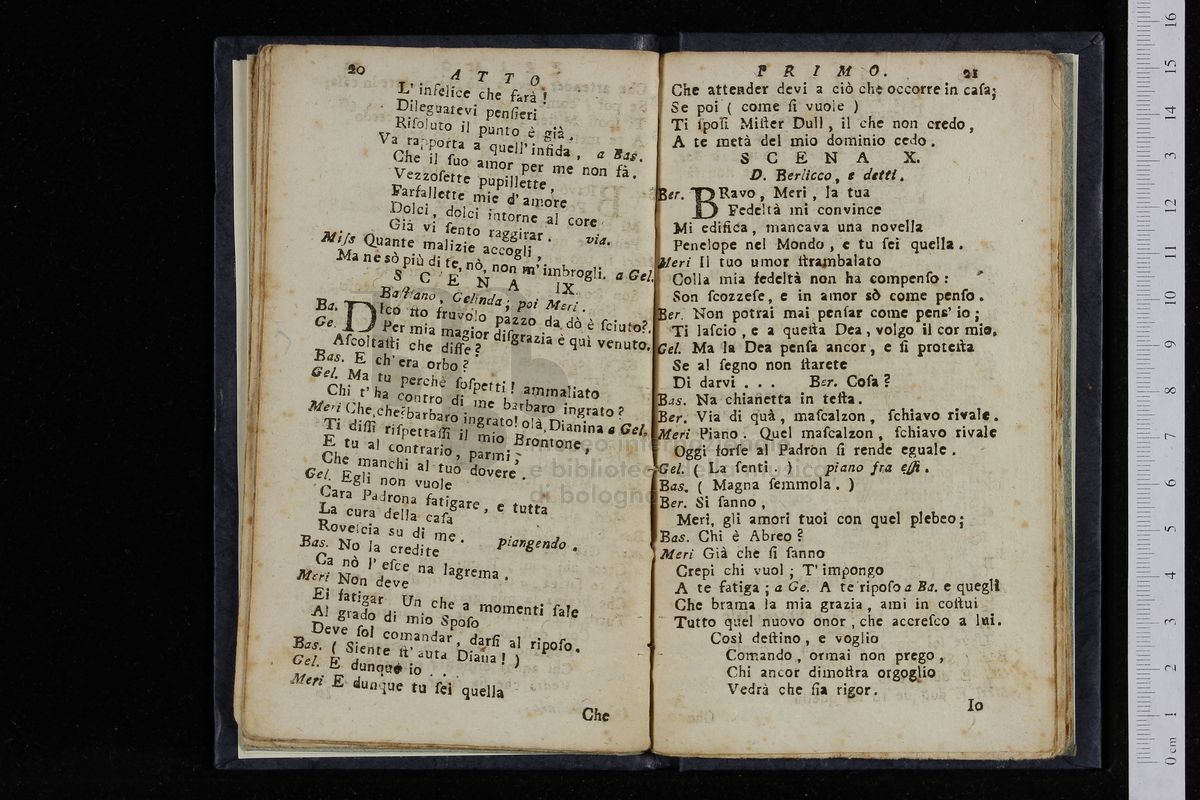 20
A T T O
L' infelice che farà!
Dileguatevi pensieri
Risoluto il punto è già.
Va rapporta a quell' infida, a Bas.
Che il suo amor per me non fà.
Vezzosette pupillette,
Farfallette mie d'amore
Dolci, dolci intorne al core
Già vi sento raggirar. via.
Miss Quante malizie accogli,
Ma ne sò più di te, nò, non m'imbrogli. a Gel.
S C E N A IX.
Bastiano, Gelinda; poi Meri.
Ba. DIco sto fruvolo pazzo da dò è sciuto?
Ge. Per mia magior disgrazia è quì venuto.
Ascoltasti che disse?
Bas. E ch'era orbo?
Gel. Ma tu perchè sospetti! ammaliato
Chi t'ha contro di me barbaro ingrato?
Meri Che, che? barbaro ingrato! olà, Dianina a Gel.
Ti dissi rispettassi il mio Brontone,
E tu al contrario, parmi,
Che manchi al tuo dovere.
Gel. Egli non vuole
Cara Padrona fatigare, e tutta
La cura della casa
Rovescia su di me. piangendo.
Bas. No la credite
Ca nò l'esce na lagrema.
Meri Non deve
Ei fatigar Un che a momenti sale
Al grado di mio Sposo
Deve sol comandar, darsi al riposo.
Bas. ( Siente st'auta Diana! )
Gel. E dunque io . . .
Meri E dunque tu sei quella
Che
P R I M O.
21
Che attender devi a ciò che occorre in casa;
Se poi ( come si vuole )
Ti sposi Mister Dull, il che non credo,
A te metà del mio dominio cedo.
S C E N A X.
D. Berlicco, e detti.
Ber. BRavo, Meri, la tua
Fedeltà mi convince
Mi edifica, mancava una novella
Penelope nel Mondo, e tu sei quella.
Meri Il tuo umor strambalato
Colla mia fedeltà non ha compenso:
Son scozzese, e in amor sò come penso.
Ber. Non potrai mai pensar come pens' io;
Ti lascio, e a questa Dea, volgo il cor mio.
Gel. Ma la Dea pensa ancor, e si protesta
Se al segno non starete
Di darvi . . . Ber. Cosa?
Bas. Na chianetta in testa.
Ber. Via di quà, mascalzon, schiavo rivale.
Meri Piano. Quel mascalzon, schiavo rivale
Oggi forse al Padron si rende eguale.
Gel. ( La senti. ) piano fra essi.
Bas. ( Magna semmola. )
Ber. Si sanno,
Meri, gli amori tuoi con quel plebeo;
Bas. Chi è Abreo?
Meri Già che si sanno
Crepi chi vuol; T' impongo
A te fatiga; a Ge. A te riposo a Ba. e quegli
Che brama la mia grazia, ami in costui
Tutto quel nuovo onor, che accresco a lui.
Così destino, e voglio
Comando, ormai non prego,
Chi ancor dimostra orgoglio
Vedrà che sia rigor.
Io
museo internazionale
e biblioteca della musica
di bologna
0 cm 1 2 3 4 5 6 7 8 9 10 11 12 13 14 15 16